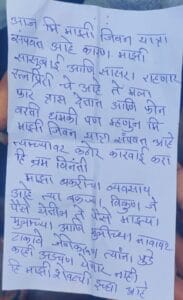 आज मि माझी जिवन यात्रा
संपवत आहे कारण माझी
सासुबाई आणि सासरा राहणार
रत्नागिरी चे आहे ते मला
फार त्रास देतात आणि फोन
वरती धमकी पण म्हणुन मि
माझी जिवन यात्रा संपवत आहे
त्यामच्यावर कठोर कारवाई करा
हि नम्र विनंती
माझा बकरीचा व्यवसाय
आहे त्या बकऱ्या विकुन जे
पैसे येतील ते पैसे माझ्या
मुलाच्या आणि मुलीच्या नावावर
टाकावे जेणेकरून त्यांना पुढे
काही अडचण येणार नाही
हि माझी शेवटची इच्छा आहे